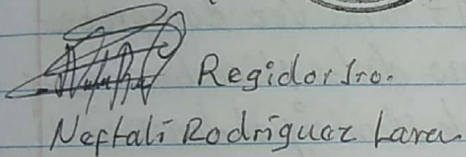 Regidor 1ro.
Neftalí Rodríguez Lara